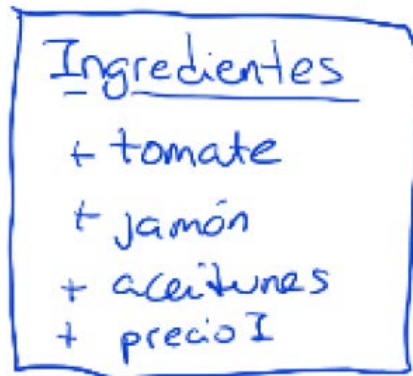 Ingredientes
+ tomate
+ jamón
+ aceitunes
+ precio I